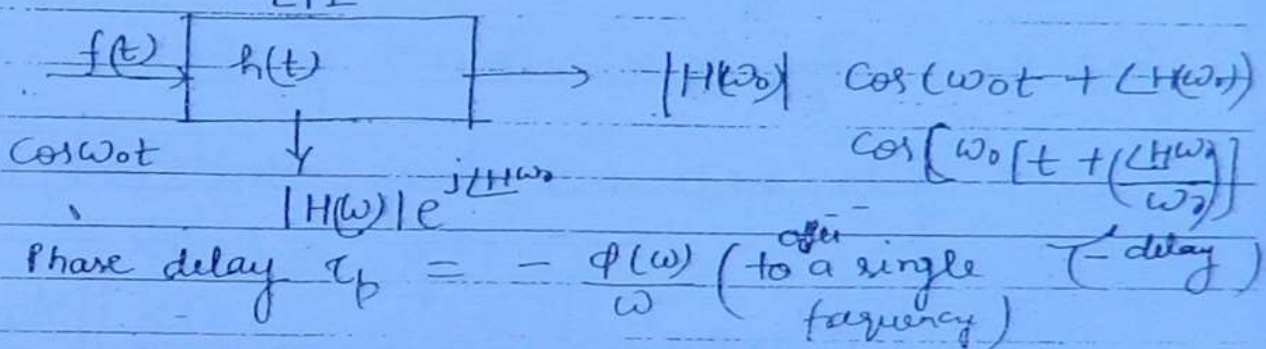 LTI
f(t) h(t) |H(ω₀)| cos(ω₀t + ∠H(ω₀))
cosω₀t cos[ω₀[t + (∠Hω₀/ω₀)]
|H(ω)| e^j∠Hω₀
Phase delay τp = - φ(ω)/ω (to a single (- delay)
frequency)